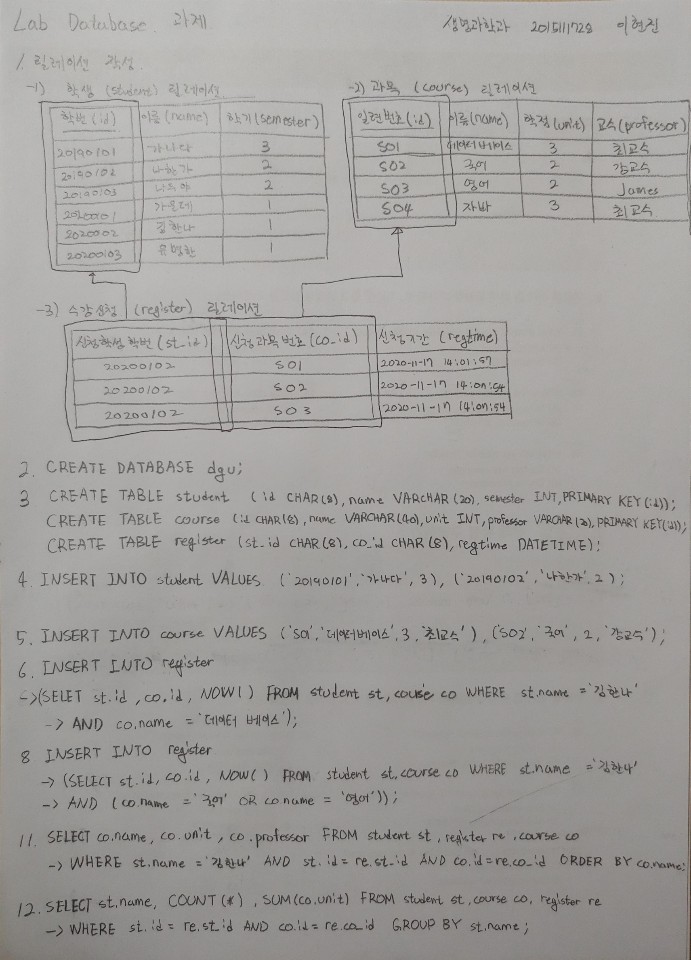 Lab Database. 과제
생명과학과 2015111728 이현진
1. 릴레이션 작성.
-1) 학생 (student) 릴레이션
학번 (id) 이름 (name) 학기 (semester)
20190101 가나다 3
20190102 나한가 2
20190103 2
20200101 1
20200102 김한나 1
20200103 1
-2) 과목 (course) 릴레이션
일련번호 (id) 이름 (name) 학점 (unit) 교수 (professor)
S01 데이터베이스 3 최교수
S02 국어 2 강교수
S03 영어 2 James
S04 자바 3 최교수
-3) 수강신청 (register) 릴레이션
신청학생 학번 (st_id) 신청과목 번호 (co_id) 신청기간 (regtime)
20200102 S01 2020-11-17 14:01:57
20200102 S02 2020-11-17 14:07:54
20200102 S03 2020-11-17 14:07:54
2. CREATE DATABASE dgu;
3 CREATE TABLE student (id CHAR(8), name VARCHAR(20), semester INT, PRIMARY KEY(id));
CREATE TABLE course (id CHAR(8), name VARCHAR(40), unit INT, professor VARCHAR(20), PRIMARY KEY(id));
CREATE TABLE register (st_id CHAR(8), co_id CHAR(8), regtime DATETIME);
4. INSERT INTO student VALUES ('20190101', '가나다', 3), ('20190102', '나한가', 2);
5. INSERT INTO course VALUES ('S01', '데이터베이스', 3, '최교수'), ('S02', '국어', 2, '강교수');
6. INSERT INTO register
->(SELET st.id, co.id, NOW() FROM student st, course co WHERE st.name = '김한나'
-> AND co.name = '데이터 베이스');
8 INSERT INTO register
-> (SELECT st.id, co.id, NOW() FROM student st, course co WHERE st.name = '김한나'
-> AND (co.name = '국어' OR co.name = '영어'));
11. SELECT co.name, co.unit, co.professor FROM student st, register re, course co
-> WHERE st.name = '김한나' AND st.id = re.st_id AND co.id = re.co_id ORDER BY co.name;
12. SELECT st.name, COUNT(*), SUM(co.unit) FROM student st, course co, register re
-> WHERE st.id = re.st_id AND co.id = re.co_id GROUP BY st.name;